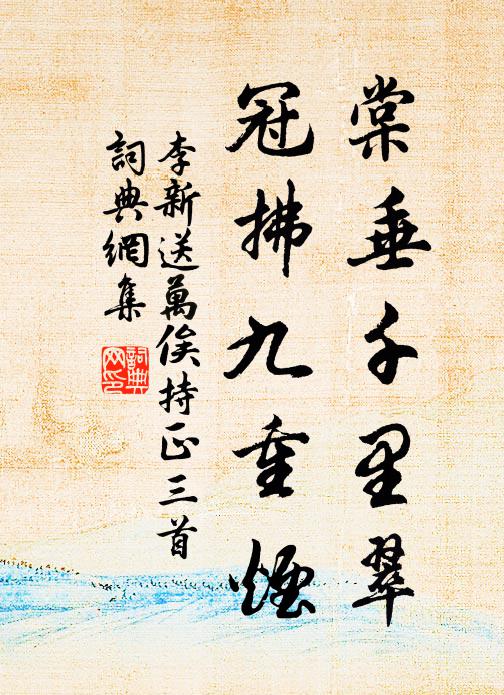 棠垂千里翠
冠拂九重烟
李新送萬俟持正三首
詞典網集
詞典网印